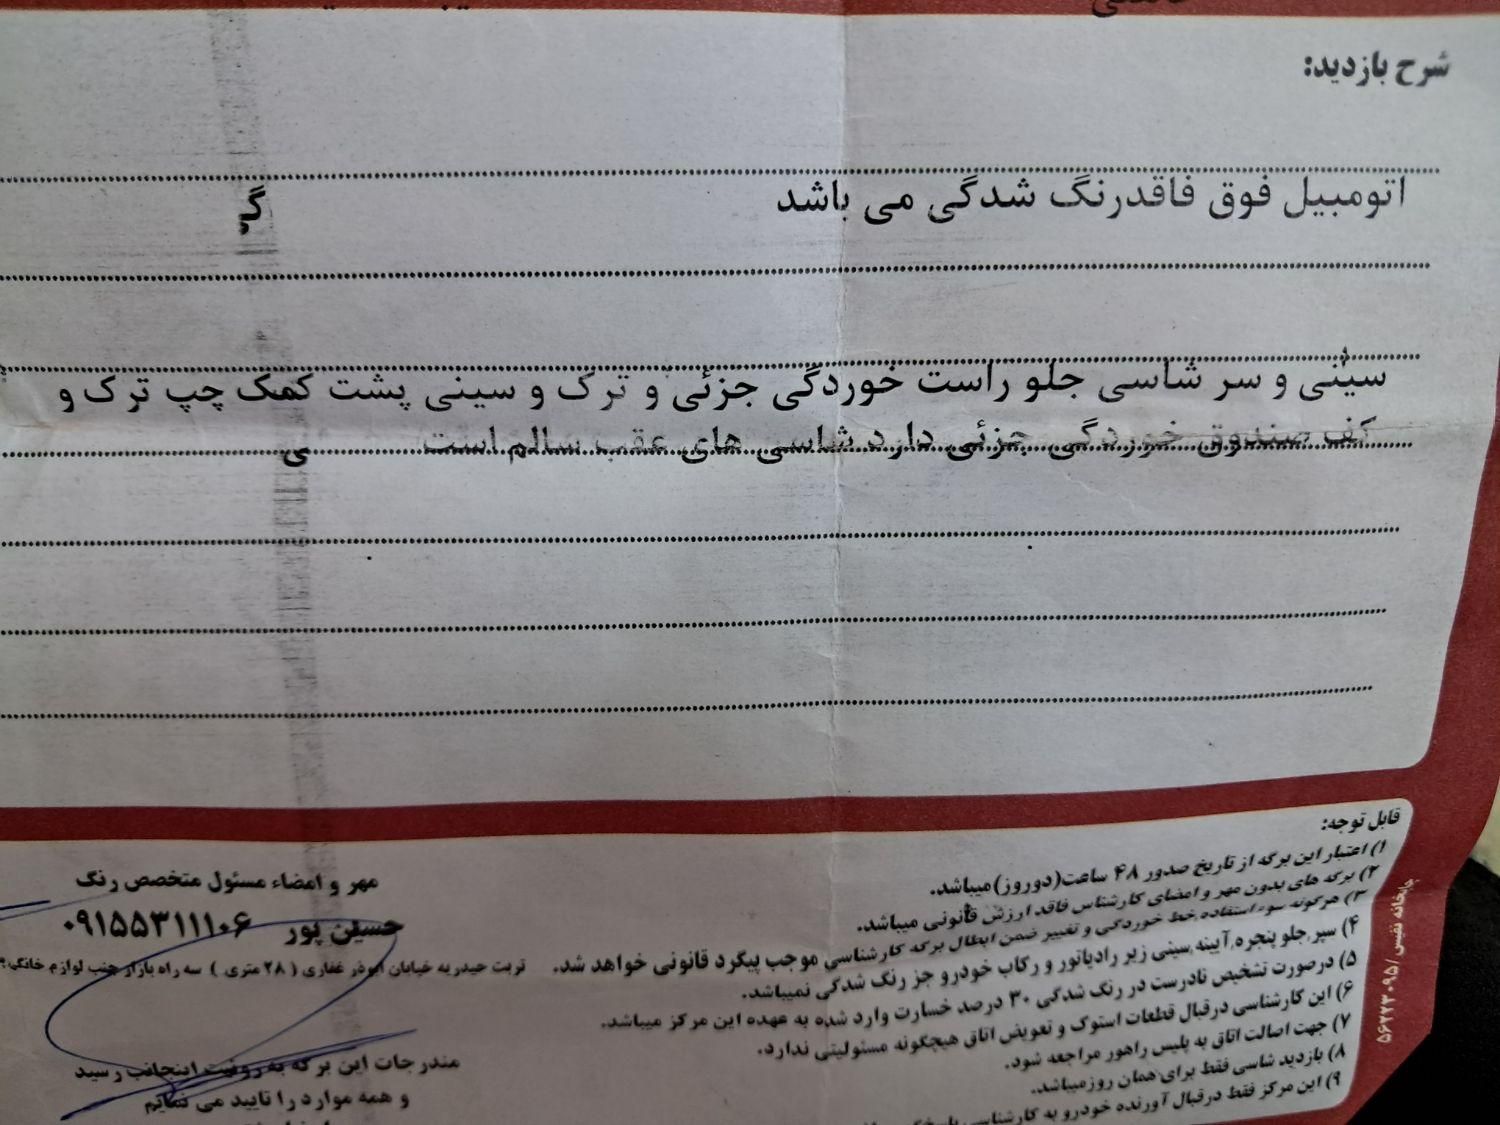 شرح بازدید:
اتومبیل فوق فاقدرنگ شدگی می باشد
گ
سینی و سر شاسی جلو راست خوردگی جزئی و ترک و سینی پشت کمک چپ ترک و
کف صندوق خوردگی جزئی دارد شاسی های عقب سالم است
ی
قابل توجه:
۱) اعتبار این برگه از تاریخ صدور ۴۸ ساعت(دوروز)میباشد.
۲) برگه های بدون مهر و امضای کارشناس فاقد ارزش قانونی میباشد.
۳) هرگونه سوء استفاده,خط خوردگی و تغییر ضمن ابطال برگه کارشناسی موجب پیگرد قانونی خواهد شد.
۴) سپر,جلو پنجره,آیینه,سینی زیر رادیاتور و رکاب خودرو جز رنگ شدگی نمیباشد.
۵) درصورت تشخیص نادرست در رنگ شدگی ۳۰ درصد خسارت وارد شده به عهده این مرکز میباشد.
۶) این کارشناسی درقبال قطعات استوک و تعویض اتاق هیچگونه مسئولیتی ندارد.
۷) جهت اصالت اتاق به پلیس راهور مراجعه شود.
۸) بازدید شاسی فقط برای همان روزمیباشد.
۹) این مرکز فقط درقبال آورنده خودرو به کارشناسی
مهر و امضاء مسئول متخصص رنگ
حسین پور ۰۹۱۵۵۳۱۱۱۰۶
تربت حیدریه خیابان ابوذر غفاری ( ۲۸ متری ) سه راه بازار جنب لوازم خانگی
مندرجات این برگه به رویت اینجانب رسید
و همه موارد را تایید می نمایم
چاپخانه نفیس /۵۶۲۲۳۰۹۵